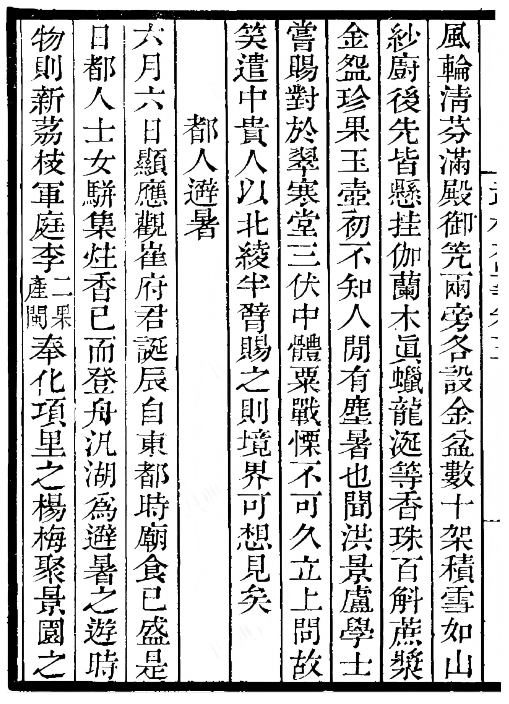 風輪清芬滿殿御笐兩旁各設金盆數十架積雪如山
紗廚後先皆懸挂伽蘭木眞蠟龍涎等香珠百斛蔗漿
金盌珍果玉壺初不知人閒有塵暑也聞洪景盧學士
嘗賜對於翠寒堂三伏中體粟戰慄不可久立上問故
笑遣中貴人以北綾半臂賜之則境界可想見矣
都人避暑
六月六日顯應觀崔府君誕辰自東都時廟食已盛是
日都人士女駢集炷香已而登舟汎湖爲避暑之遊時
物則新荔枝軍庭李二果產閩奉化項里之楊梅聚景園之